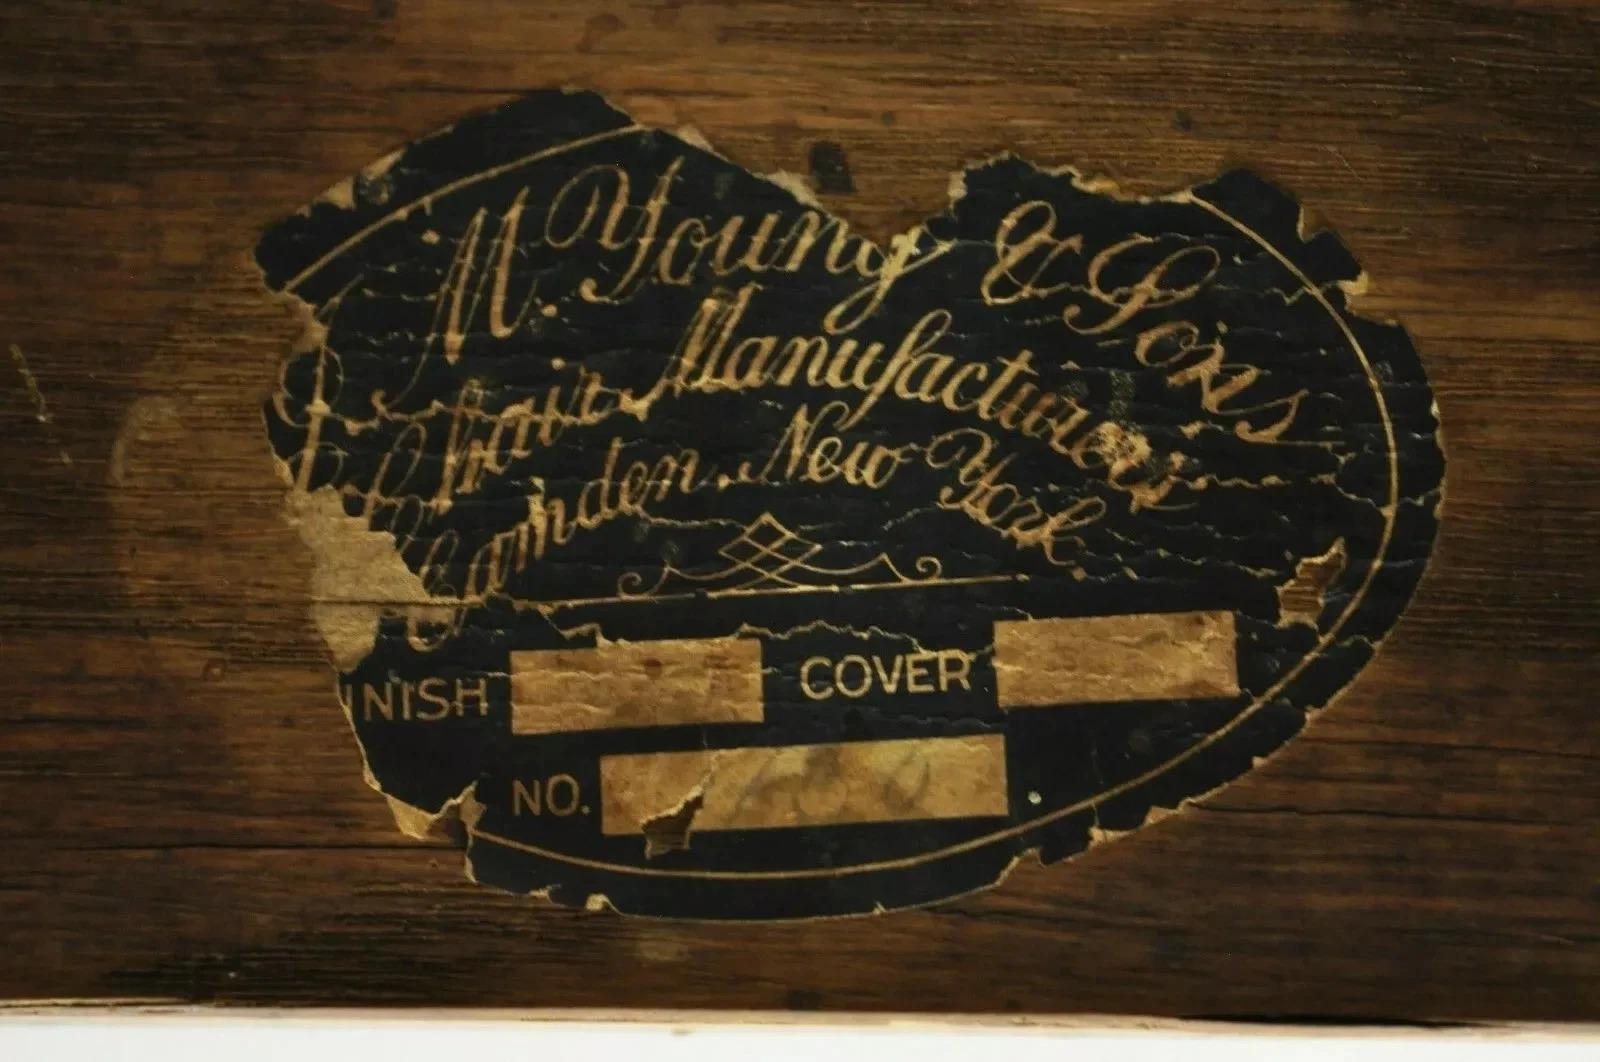 M. Young & Sons
Chair Manufacturers
Camden, New York
INISH COVER
NO.